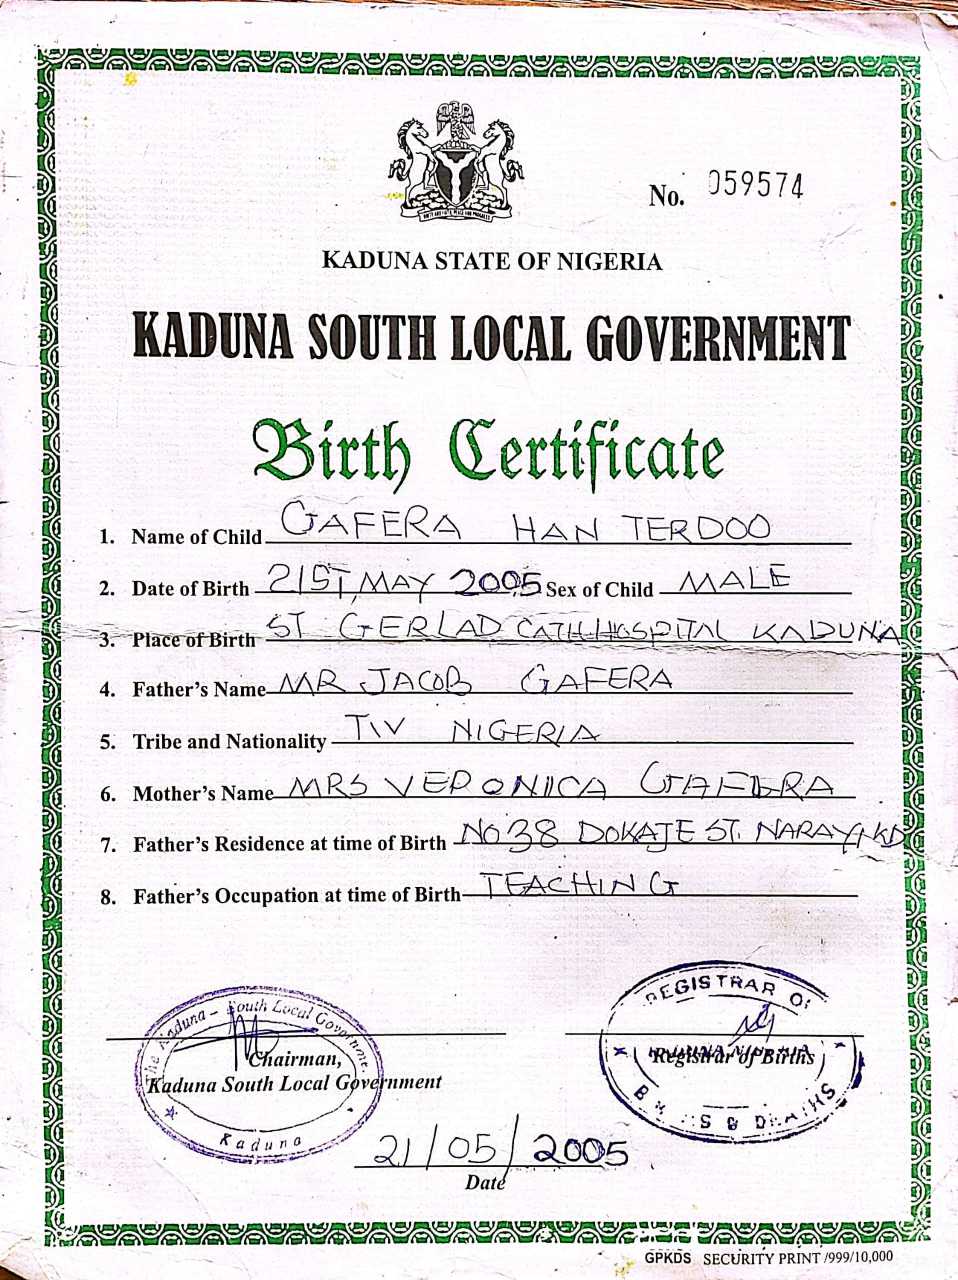 No. 059574
KADUNA STATE OF NIGERIA
KADUNA SOUTH LOCAL GOVERNMENT
Birth Certificate
1. Name of Child GAFERA HAN TERDOO
2. Date of Birth 21ST, MAY 2005 Sex of Child MALE
3. Place of Birth ST. GERLAD CATH. HOSPITAL KADUNA
4. Father's Name MR JACOB GAFERA
5. Tribe and Nationality TIV NIGERIA
6. Mother's Name MRS VERONICA GAFERA
7. Father's Residence at time of Birth NO 38 DOKAJE ST. NARAYI KD
8. Father's Occupation at time of Birth TEACHING
The Kaduna - South Local Governme
Kaduna
REGISTRAR OF
S & D
Chairman,
Kaduna South Local Government
Registrar of Births
21/05/2005
Date
GPKDS SECURITY PRINT /999/10,000